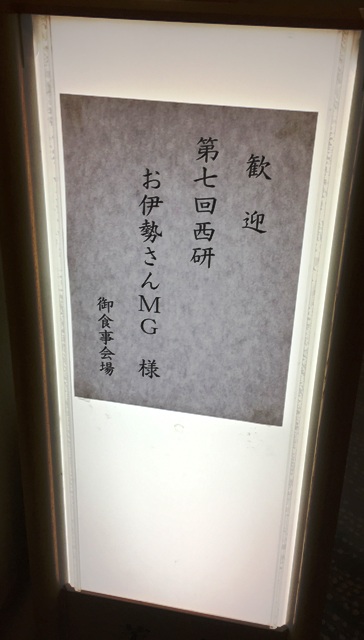 歓迎
第七回西研
お伊勢さんMG 様
御食事会場